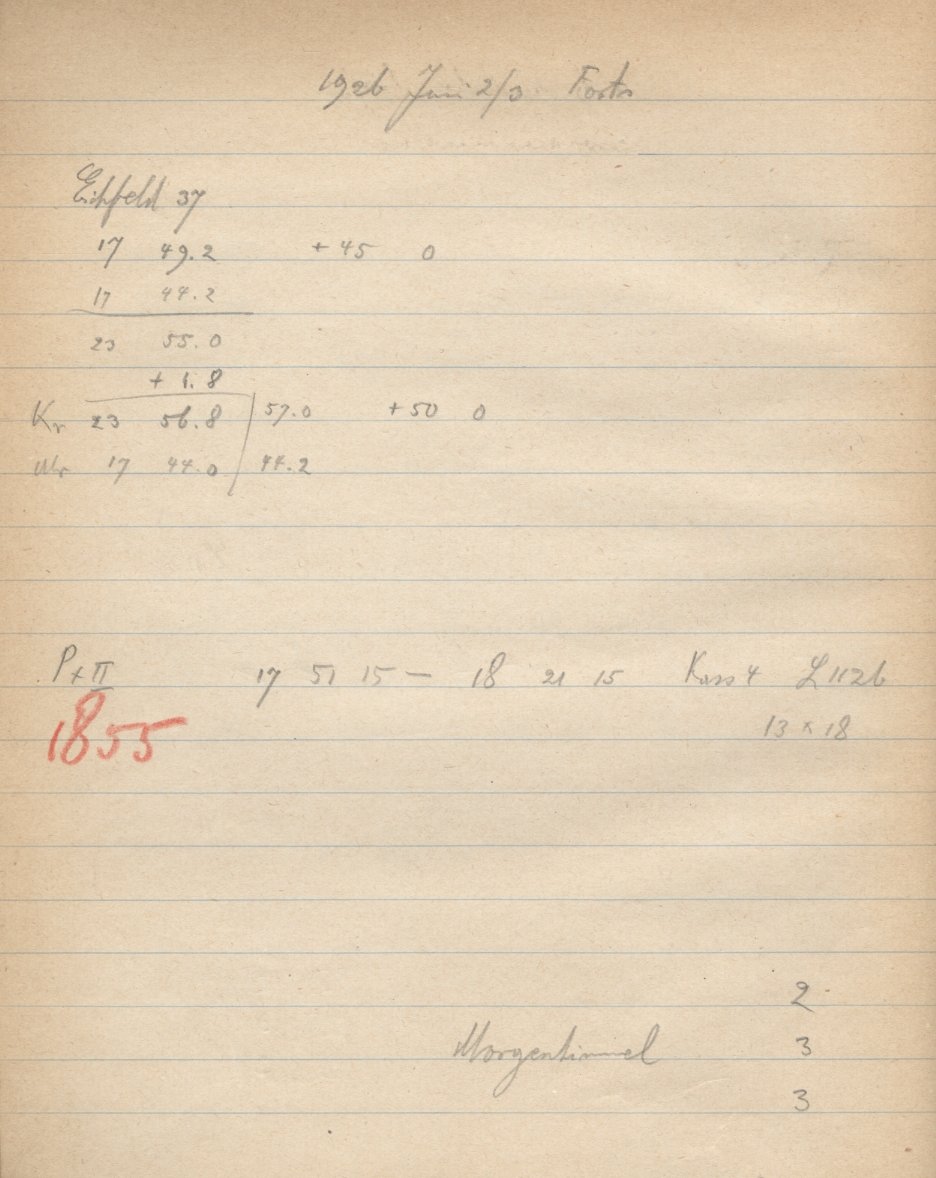 1926 Juni 2/3 Forts
Eichfeld 37
17 49.2 +45 0
17 44.2
23 55.0
+ 1.8
Kr 23 56.8 57.0 +50 0
Uhr 17 44.0 44.2
P + II 17 51 15 — 18 21 15 Kass 4 L 1126
1855 13 × 18
2
Morgenhimmel 3
3